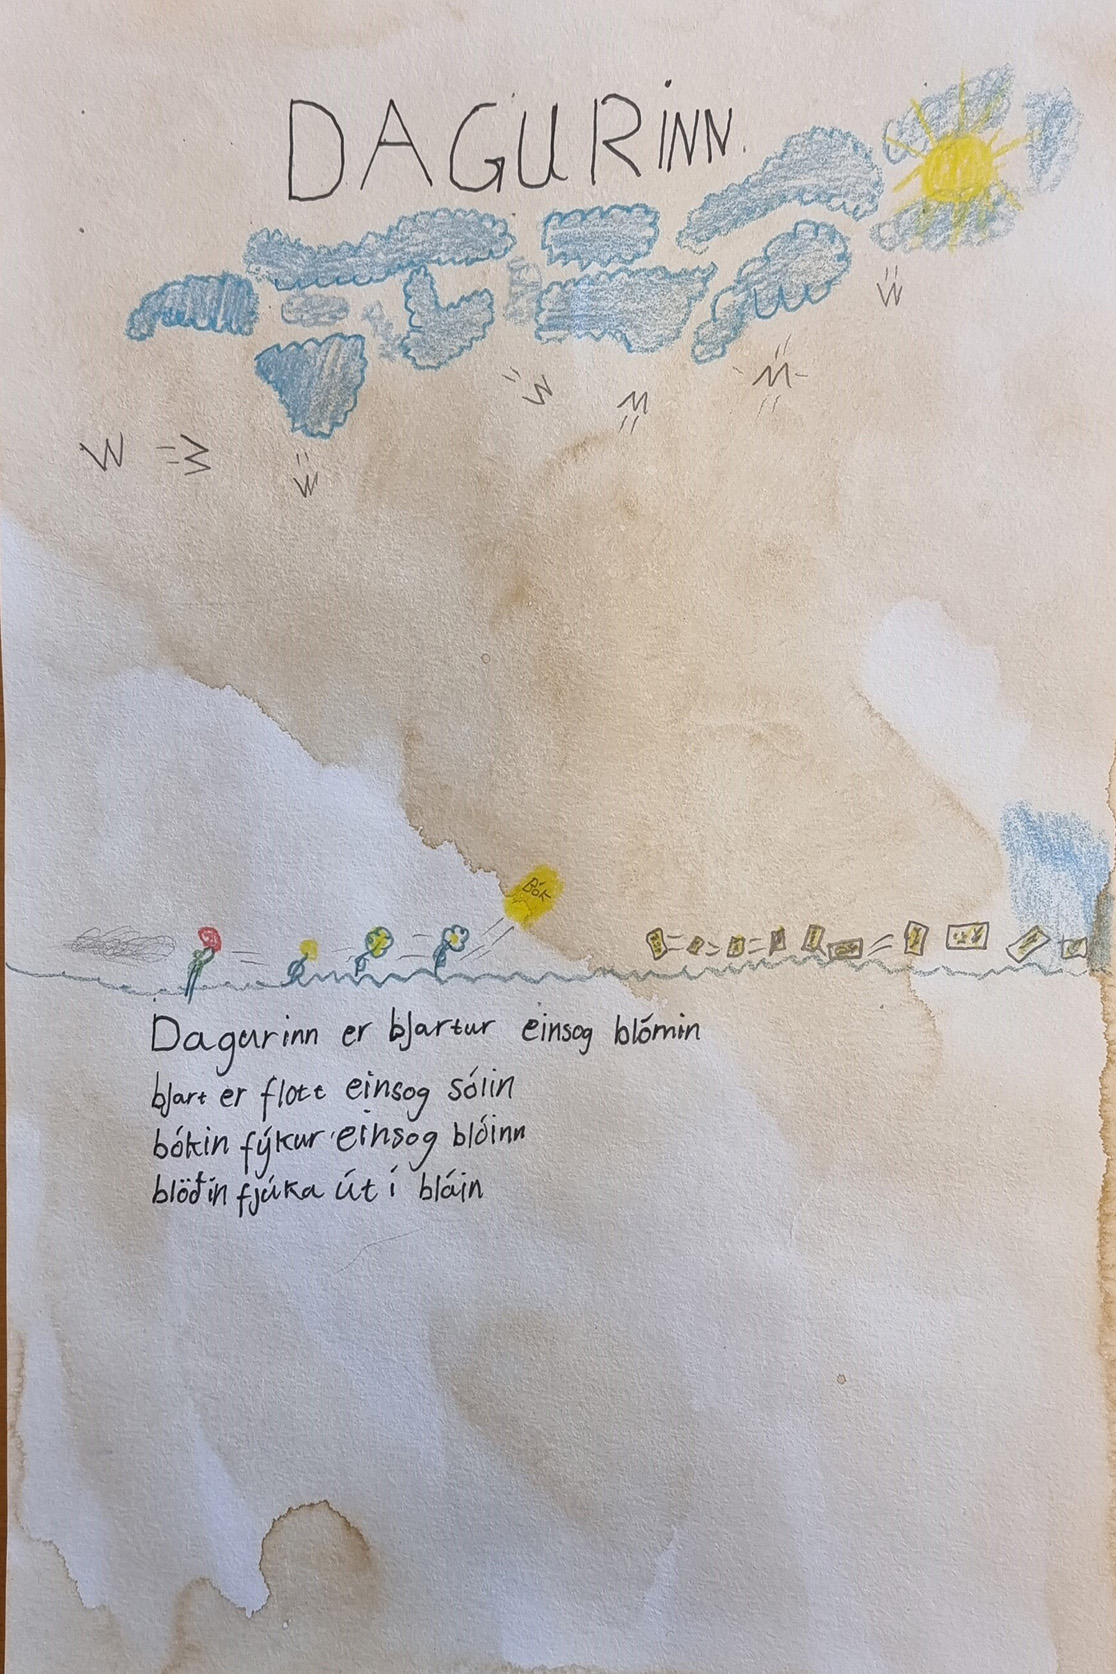 DAGURINN.
BÓK
Dagurinn er bjartur einsog blómin
bjart er flott einsog sólin
bókin fýkur einsog blóinn
blöðin fjúka út í bláin